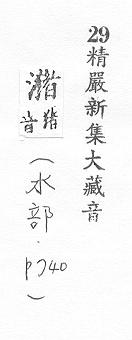 29精嚴新集大藏音
潴
猪
音
（水部．p740）